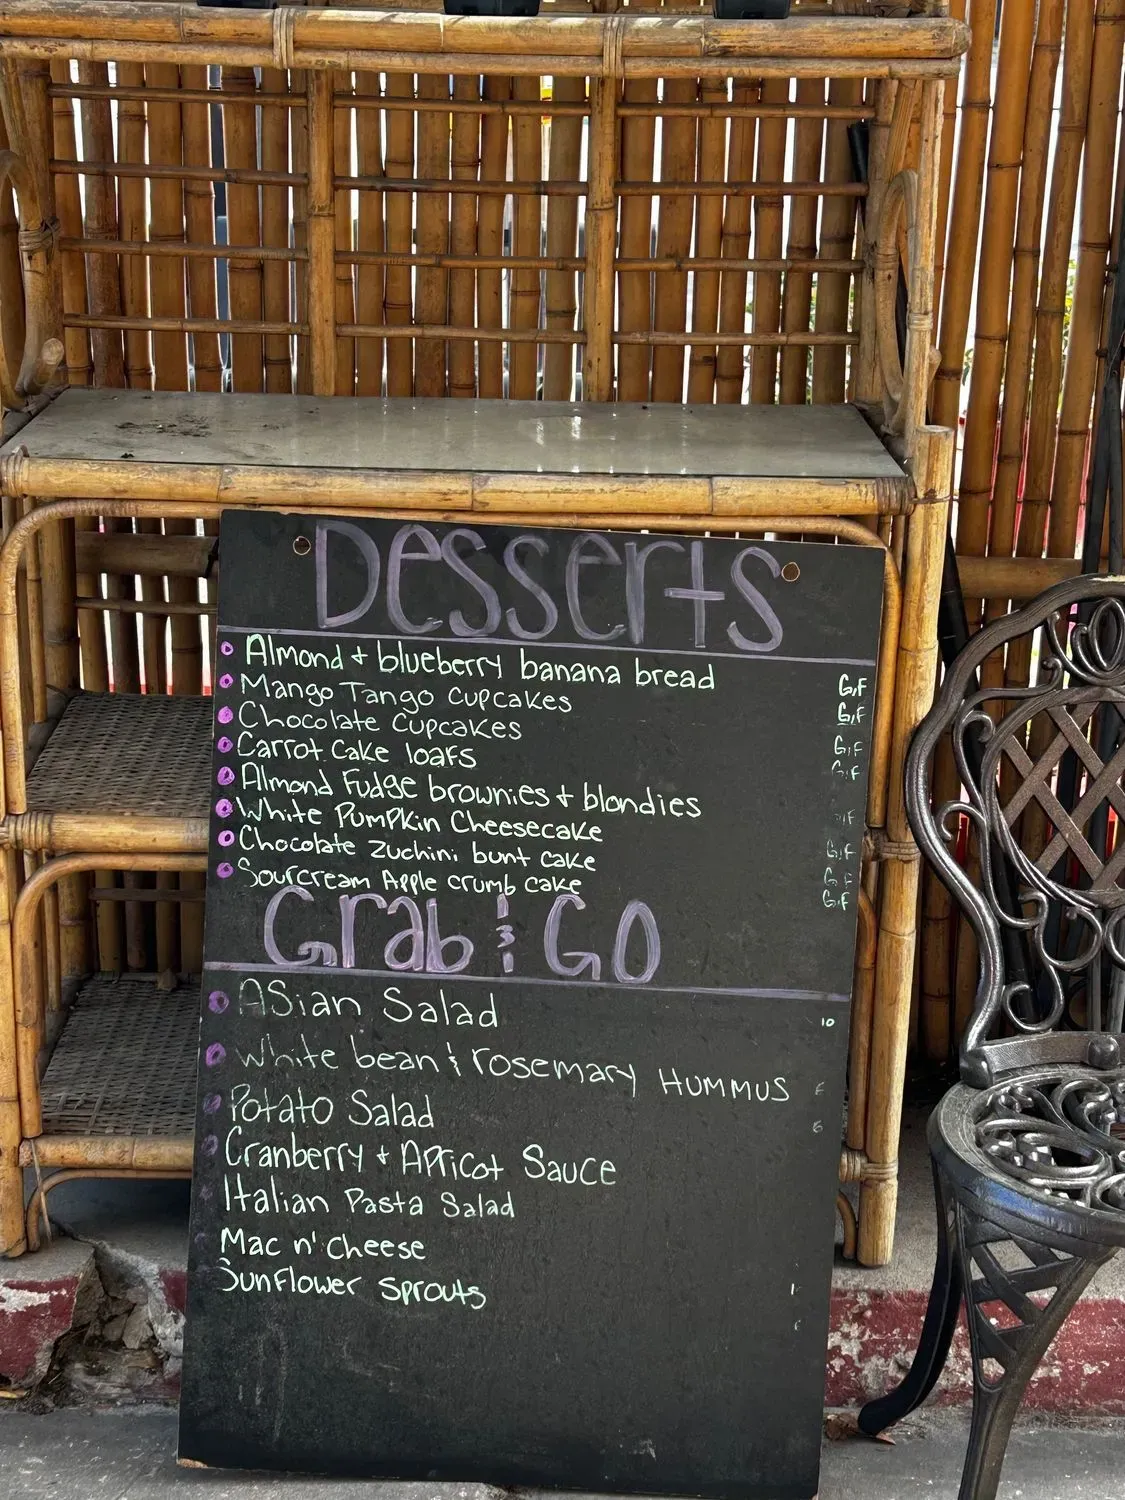 Desserts
Almond + blueberry banana bread G.F
Mango Tango Cupcakes G.F
Chocolate Cupcakes G.F
Carrot Cake loafs G.F
Almond Fudge brownies + blondies
White Pumpkin Cheesecake G.F
Chocolate Zuchini bunt cake G F
Sourcream Apple crumb cake G.F
Grab & GO
Asian Salad 10
White bean & rosemary HUMMUS
Potato Salad
Cranberry + Apricot Sauce
Italian Pasta Salad
Mac n' cheese
Sunflower sprouts